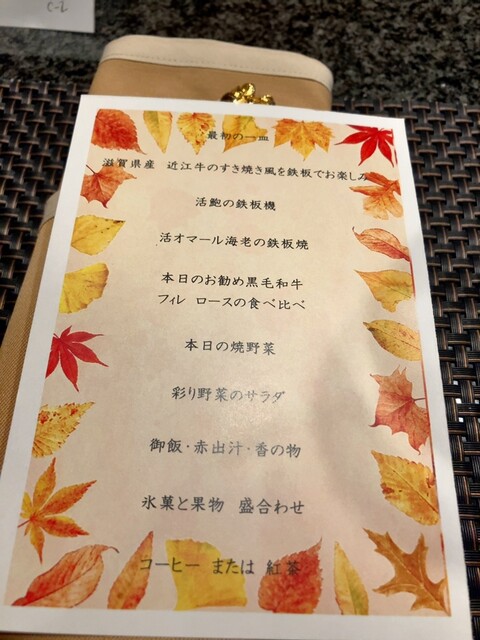 C-2
最初の一皿
滋賀県産 近江牛のすき焼き風を鉄板でお楽しみ
活鮑の鉄板機
活オマール海老の鉄板焼
本日のお勧め黒毛和牛
フィレ ロースの食べ比べ
本日の焼野菜
彩り野菜のサラダ
御飯・赤出汁・香の物
氷菓と果物 盛合わせ
コーヒー または 紅茶